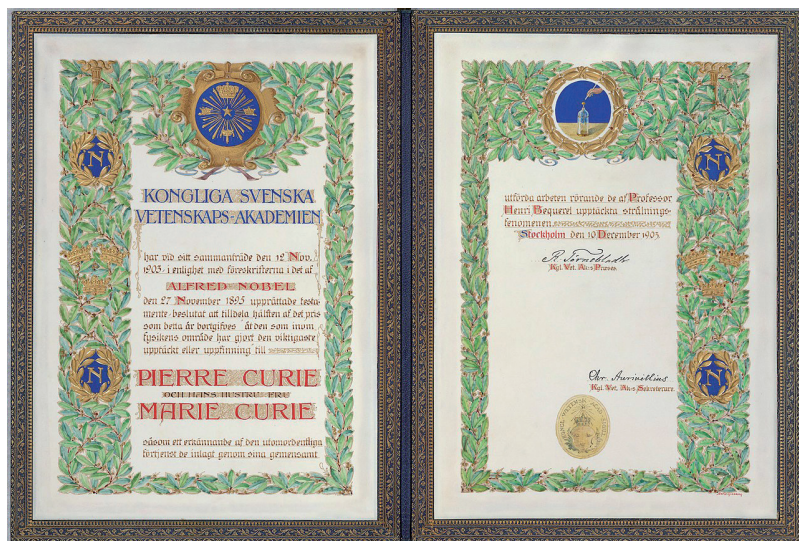 KONGLIGA SVENSKA
VETENSKAPS-AKADEMIEN
har vid sitt sammanträde den 12 Nov.
1903, i enlighet med föreskrifterna i det af
ALFRED NOBEL
den 27 November 1895 upprättade testa-
mente, beslutat att tilldela hälften af det pris
som detta år bortgifves åt den som inom
fysikens område har gjort den viktigaste
upptäckt eller uppfinning till
PIERRE CURIE
OCH HANS HUSTRU FRU
MARIE CURIE
såsom ett erkännande af den utomordentliga
förtjenst de inlagt genom sina gemensamt
N
N
utförda arbeten rörande de af Professor
Henri Bequerel upptäckta strålnings-
fenomenen.
Stockholm den 10 December 1903.
R. Törnebladh
Kgl. Vet. Ak:s Præses.
Chr. Aurivillius
Kgl. Vet. Ak:s Sekreterare.
N
N